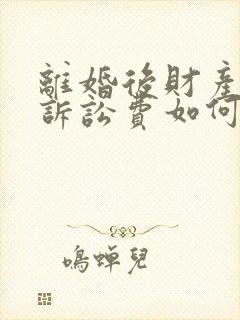 離婚後財產
訴訟費如何
鳴蟬兒